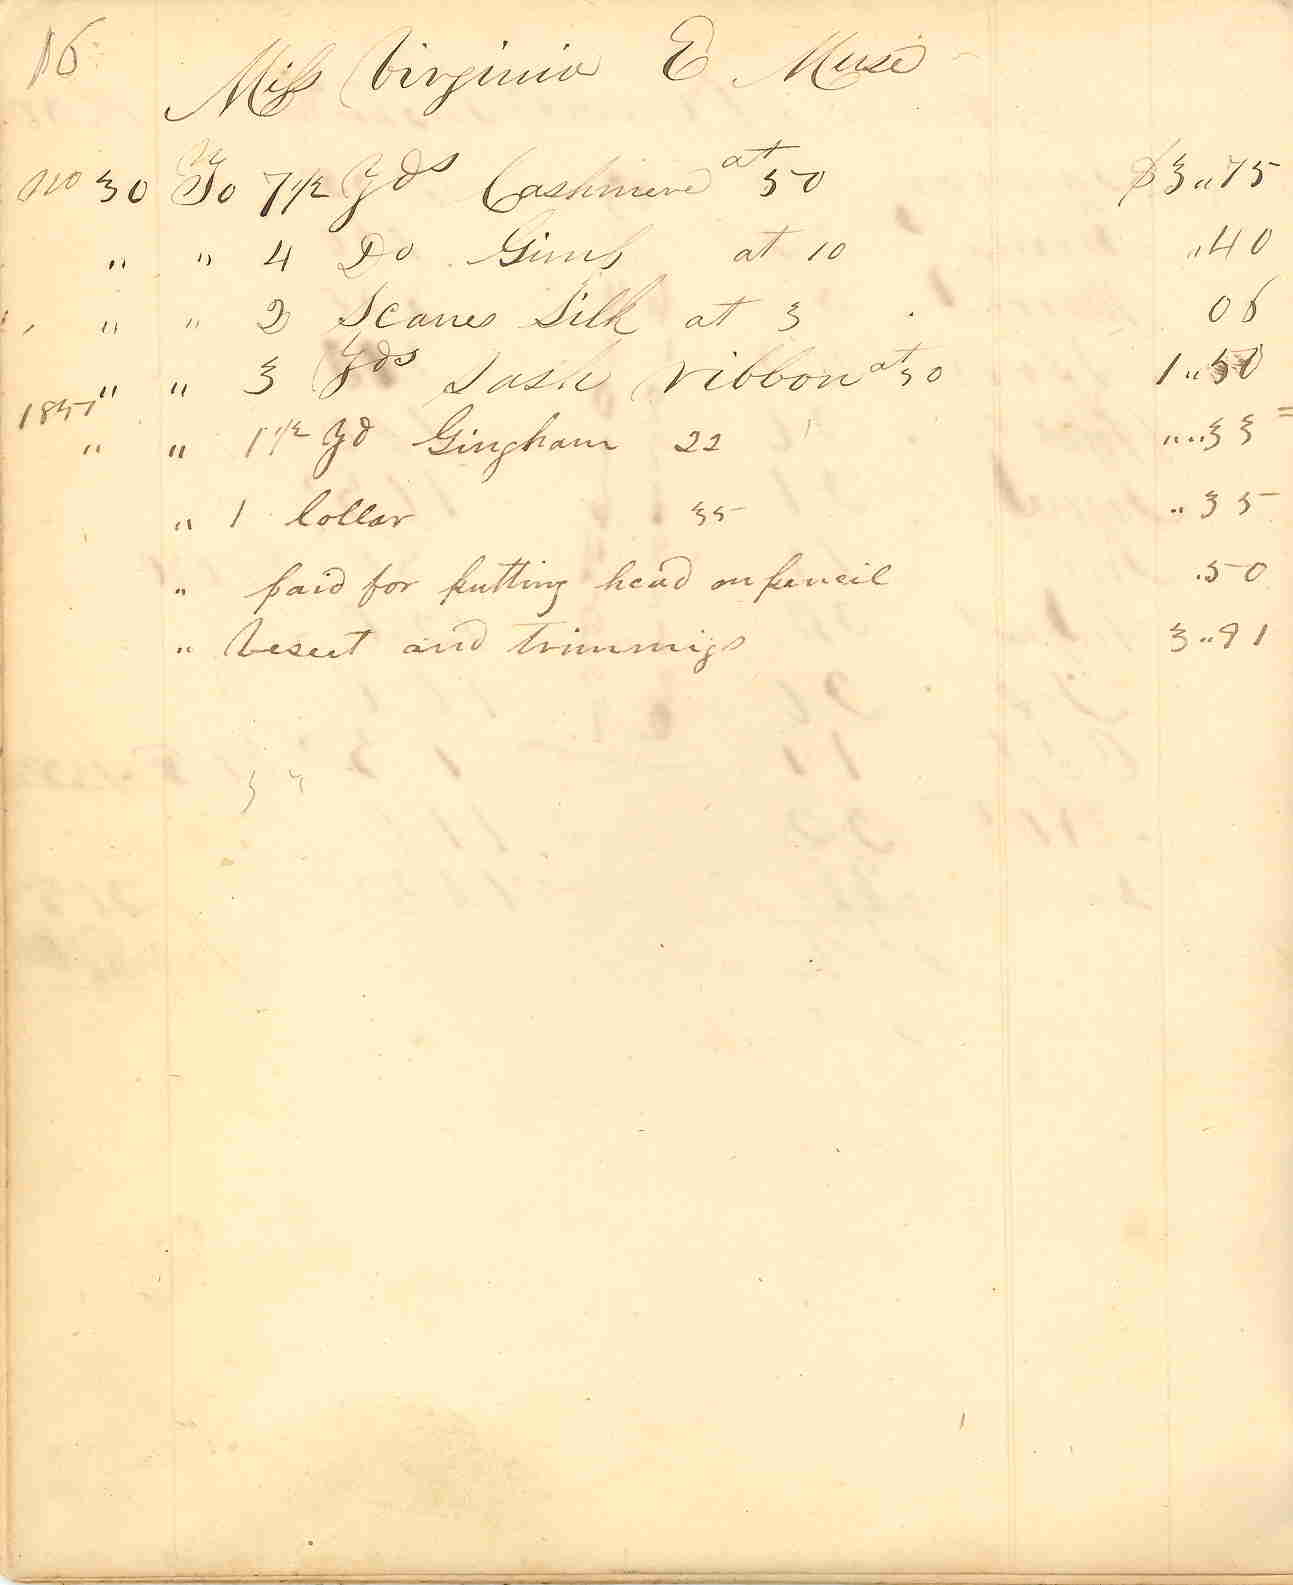 16
Miss Virginia E Muse
No 30 To 7 1/2 Yds Cashmere at 50 $3 "75
" " 4 Do Gimp at 10 "40
" " 2 Scanes Silk at 3 06
" " 3 Yds Sash ribbon at 50 1 "50
1851
" " 1 1/2 Yd Gingham 22 " "33
" 1 Collar 35 " 35
" paid for putting head on pencil .50
" Veseet and trimmigs 3 "91